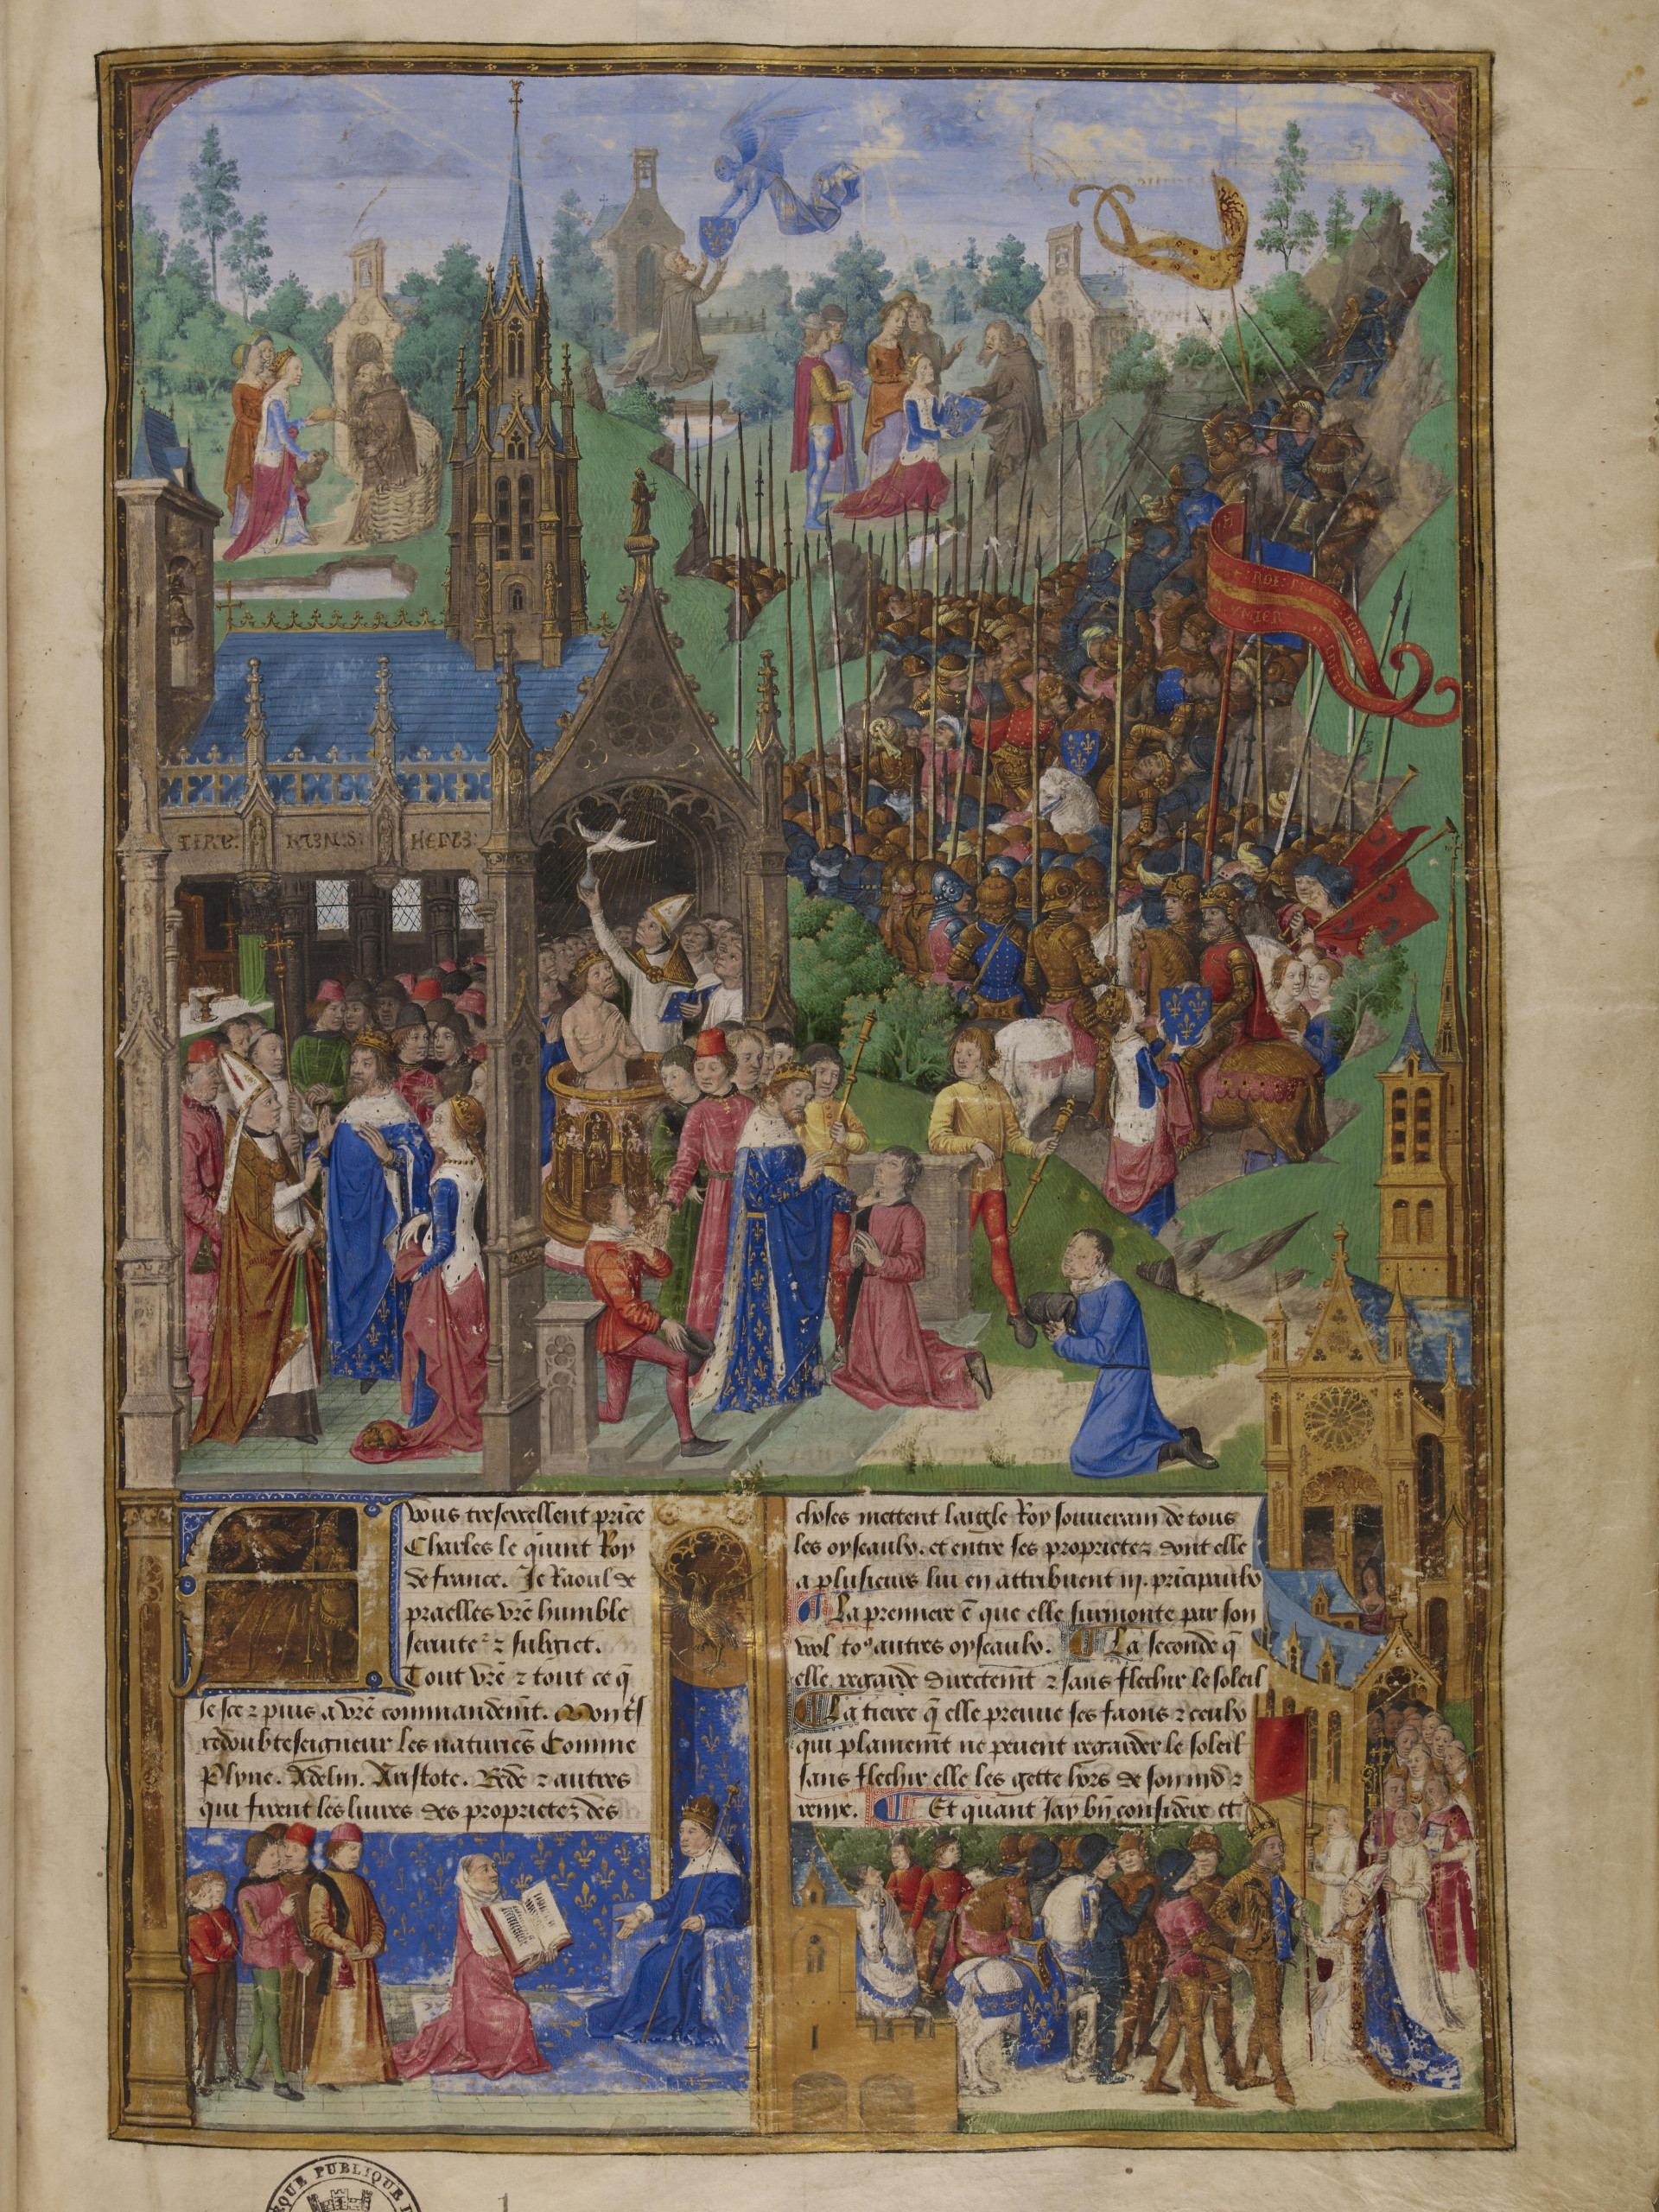 vous tresexellent price
Charles le quint Roy
de france. Je Raoul de
praelles vre humble
seruite² ⁊ subgiet.
Tout vre ⁊ tout ce q̄
Je sce ⁊ puis a vre commandemt. Mon t͛s
redoubte seigneur les naturies Comme
Plyne. Adelm. Aristote. Bede ⁊ autres
qui firent les liures des proprietez des
choses mettent laigle Roy souuerain de tous
les oyseaulx. et entre ses proprietez dont elle
a plusieurs luy en attribuent iij. principaulx
La premiere ē que elle surmonte par son
vol to⁹ autres oyseaulx. La seconde q̄
elle regarde directemt ⁊ sans flechir le soleil
La tierce q̄ elle preuue ses faons ⁊ ceulx
qui plainemt ne peuent regarder le soleil
sans flechir elle les gette hors de son nid ⁊
renye. Et quant Jay bn̄ considere et
PUBLIQUE
1